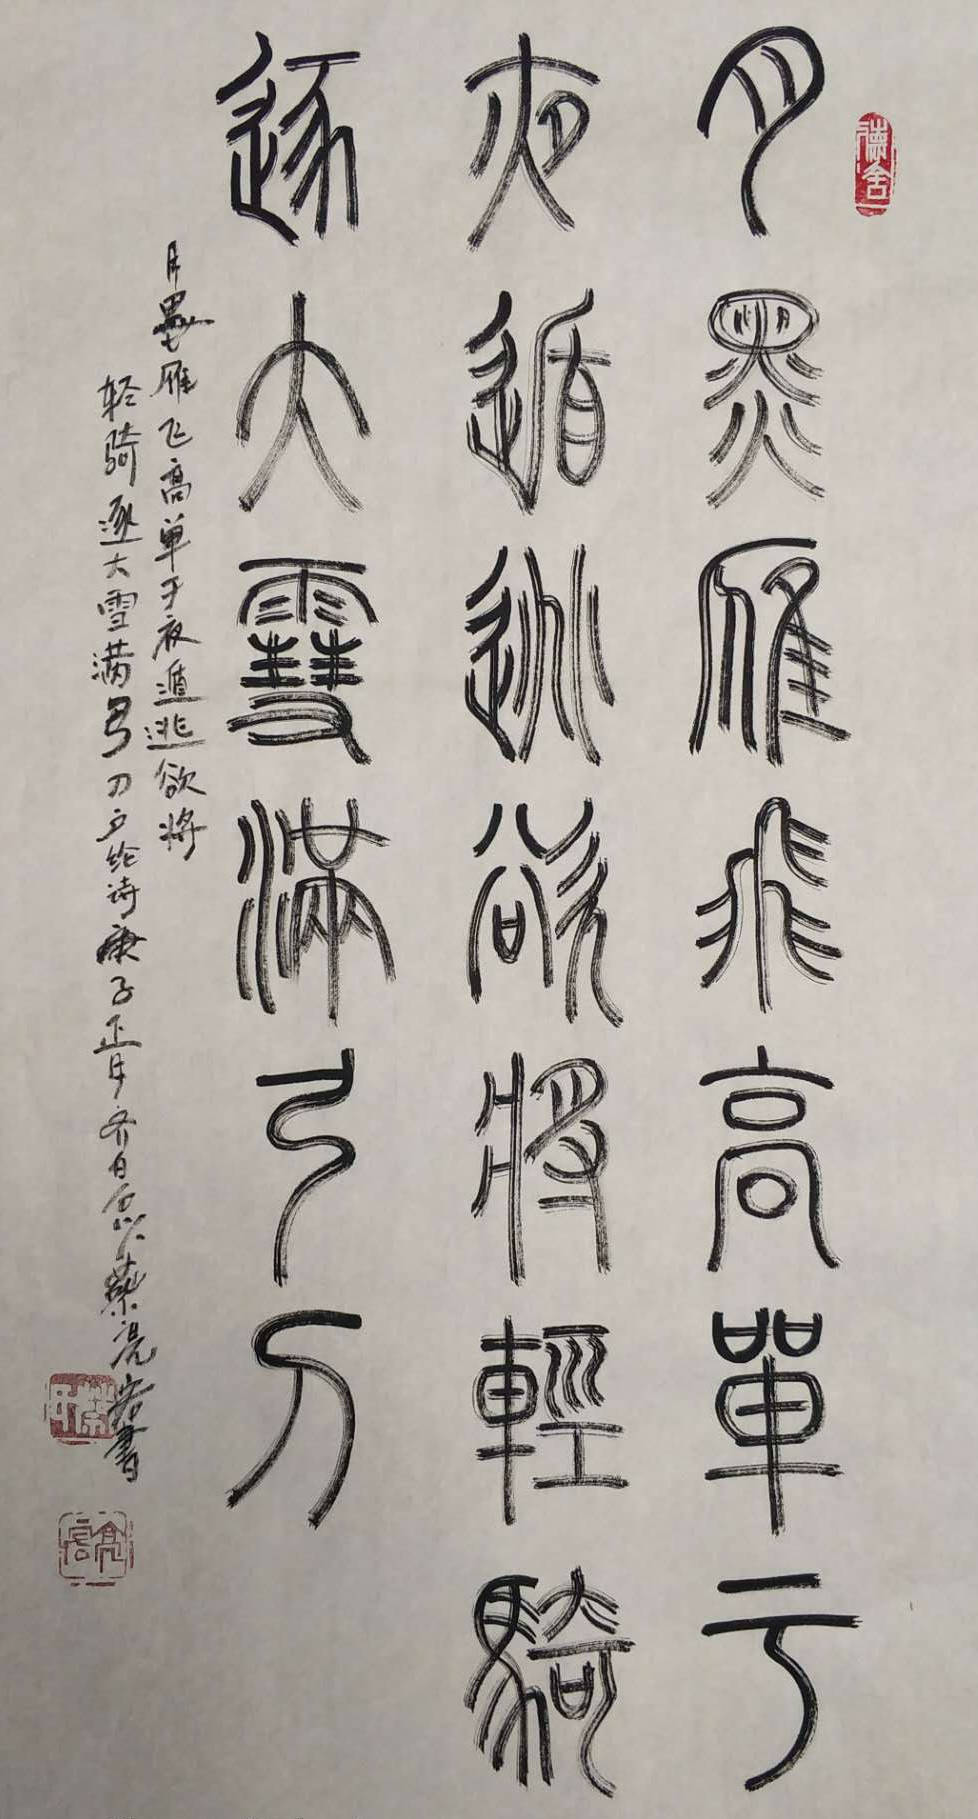 月黑雁飛高單于
夜遁逃欲將輕騎
逐大雪滿弓刀
月黑雁飞高单于夜遁逃欲将
轻骑逐大雪满弓刀 卢纶诗庚子正月 书